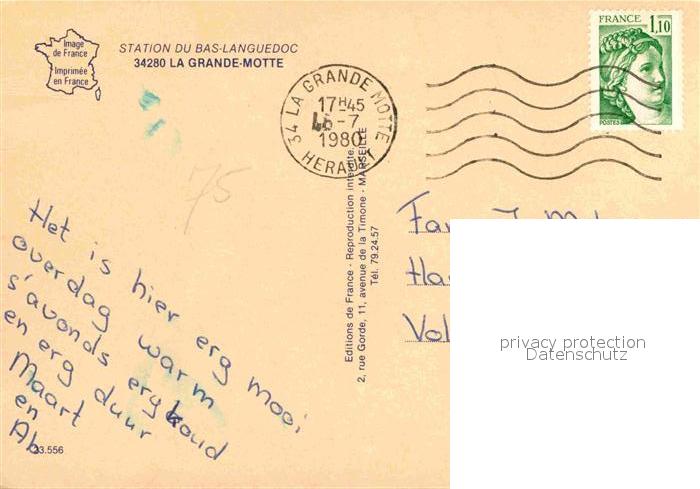 Image
de France
Imprimée
en France
STATION DU BAS-LANGUEDOC
34280 LA GRANDE-MOTTE
34 LA GRANDE MOTTE
17H45
-7
1980
HERAULT
FRANCE
1,10
POSTES
75
Het is hier erg mooi
overdag warm
s'avonds erg koud
en erg duur
Maart
en
Ab
23.556
Editions de France - Reproduction interdite
2, rue Gorde, 11, avenue de la Timone - MARSEILLE
Tél. 79.24.57
privacy protection
Datenschutz